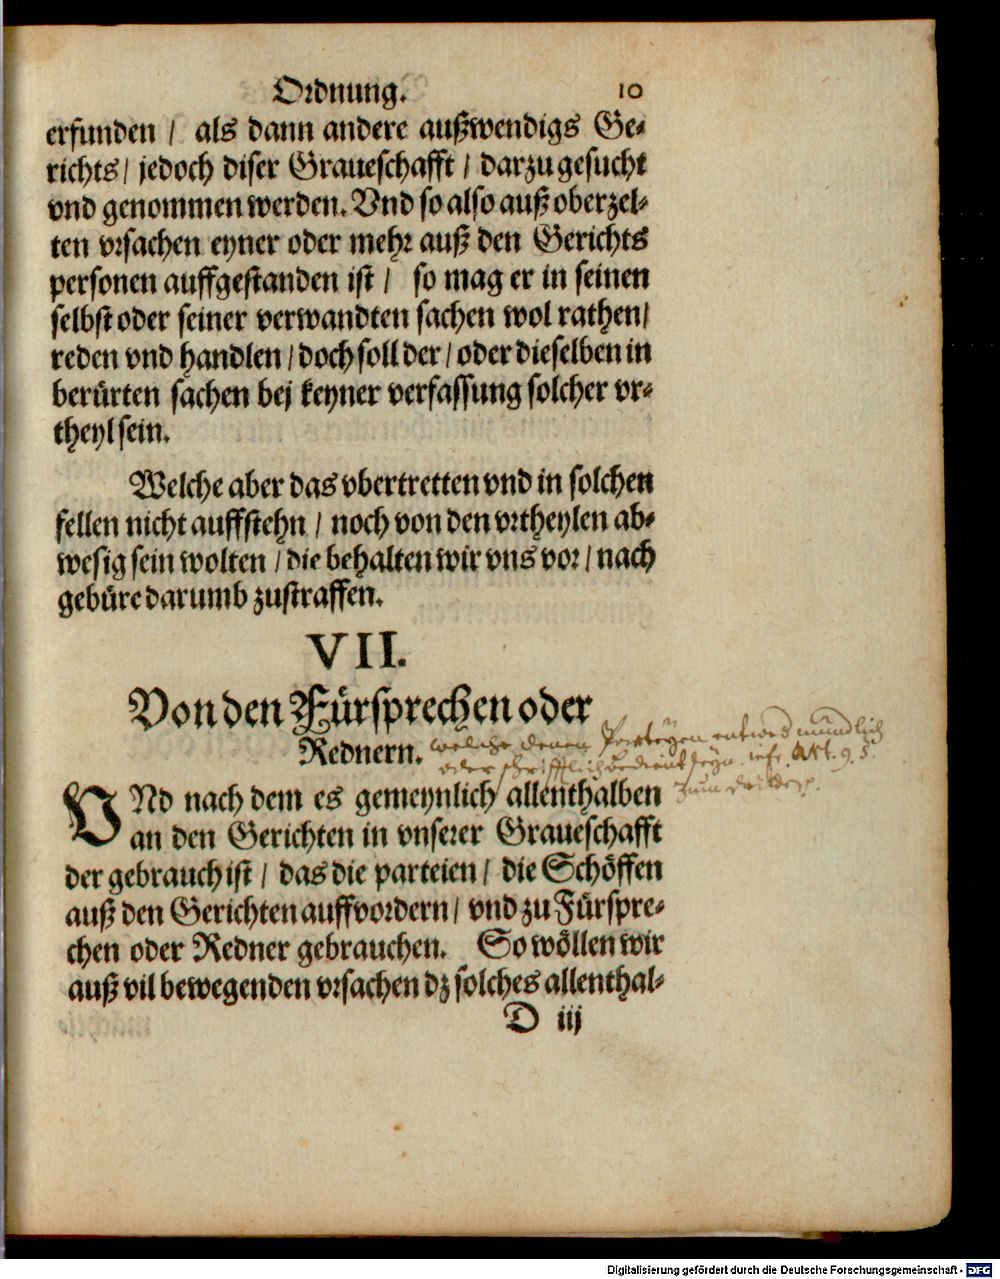 Ordnung. 10
erfunden / als dann andere außwendigs Ge-
richts / jedoch diser Graueschafft / darzu gesucht
vnd genommen werden. Vnd so also auß oberzel-
ten vrsachen eyner oder mehr auß den Gerichts
personen auffgestanden ist / so mag er in seinen
selbst oder seiner verwandten sachen wol rathen /
reden vnd handlen / doch soll der / oder dieselben in
berürten sachen bej keyner verfassung solcher vr-
theyl sein.
Welche aber das vbertretten vnd in solchen
fellen nicht auffstehn / noch von den vrtheylen ab-
wesig sein wolten / die behalten wir vns vor / nach
gebüre darumb zustraffen.
VII.
Von den Fürsprechen oder
Rednern.
welche denen Parteyen entwed mündlich
oder schrifftlich bedient seyn. Art. 9. §.
zum dritten.
VNd nach dem es gemeynlich allenthalben
an den Gerichten in vnserer Graueschafft
der gebrauch ist / das die parteien / die Schöffen
auß den Gerichten auffvordern / vnd zu Fürspre-
chen oder Redner gebrauchen. So wöllen wir
auß vil bewegenden vrsachen dz solches allenthal-
D iij
Digitalisierung gefördert durch die Deutsche Forschungsgemeinschaft - DFG